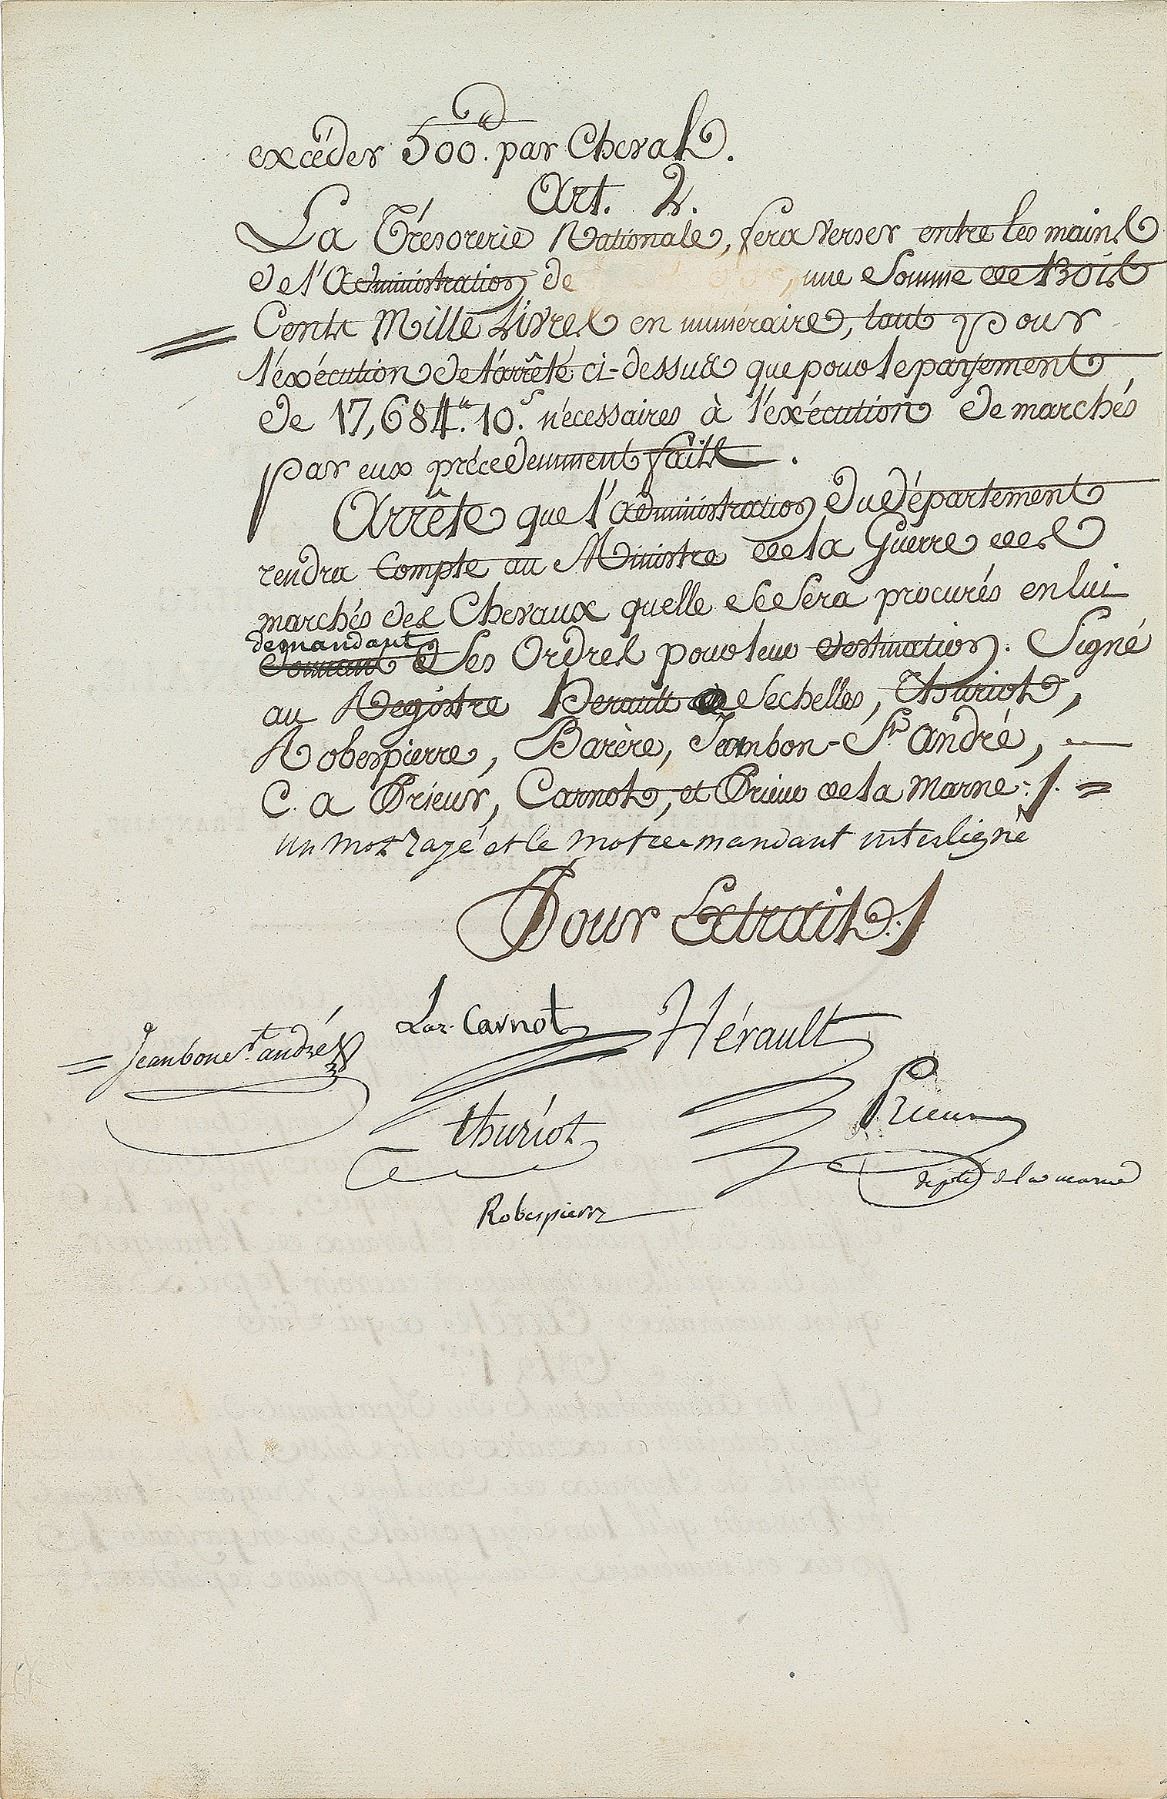 excéder 500.# par Cheval.
Art. 2.
La Trésorerie Nationale, fera verser entre les mains
de l'Administration de , une Somme de trois
Cents Mille Livres en numéraire, tant pour
l'exécution de l'arrêté ci-dessus que pour le payement
de 17,684.# 10.s nécessaires à l'exécution de marchés
par eux précedemment faits.
Arrête que l'administration du département
rendra Compte au Ministre de la Guerre des
marchés des Chevaux quelle se sera procurés en lui
demandant
Ses Ordres pour leur destination. Signé
au Registre Herault de Sechelles, Thuriot,
Robespierre, Barère, Jeanbon-St. andré,
C. a Prieur, Carnot, et Prieur de la Marne ./. =
un mot rayé et le mot demandant interligné
Pour Extrait ./.
Laz. Carnot Hérault
Jeanbon St. andré
Prieur
thuriot
député de la marne
Robespierre